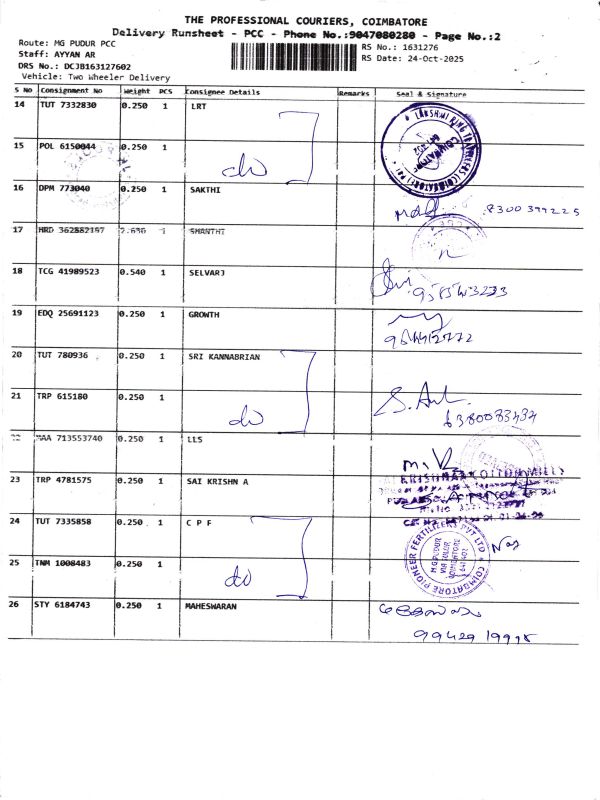 THE PROFESSIONAL COURIERS, COIMBATORE
Delivery Runsheet - PCC - Phone No.:9047080280 - Page No.:2
Route: MG PUDUR PCC
RS No.: 1631276
Staff: AYYAN AR
RS Date: 24-Oct-2025
DRS No.: DCJB163127602
Vehicle: Two Wheeler Delivery
S No Consignment No Weight PCS Consignee Details Remarks Seal & Signature
14 TUT 7332830 0.250 1 LRT
15 POL 6150044 0.250 1
do
16 DPM 773040 0.250 1 SAKTHI
8300399225
17 HRD 362882197 2.630 1 SHANTHI
18 TCG 41989523 0.540 1 SELVARJ
19 EDQ 25691123 0.250 1 GROWTH
20 TUT 780936 0.250 1 SRI KANNABRIAN
21 TRP 615180 0.250 1
do
6380083434
22 MAA 713553740 0.250 1 LLS
23 TRP 4781575 0.250 1 SAI KRISHN A
24 TUT 7335858 0.250 1 C P F
COIMBATORE PIONEER FERTILIZERS PVT LTD
M.G PUDUR
VIA SULUR
COIMBATORE
641 402
25 TNM 1008483 0.250 1
do
26 STY 6184743 0.250 1 MAHESWARAN